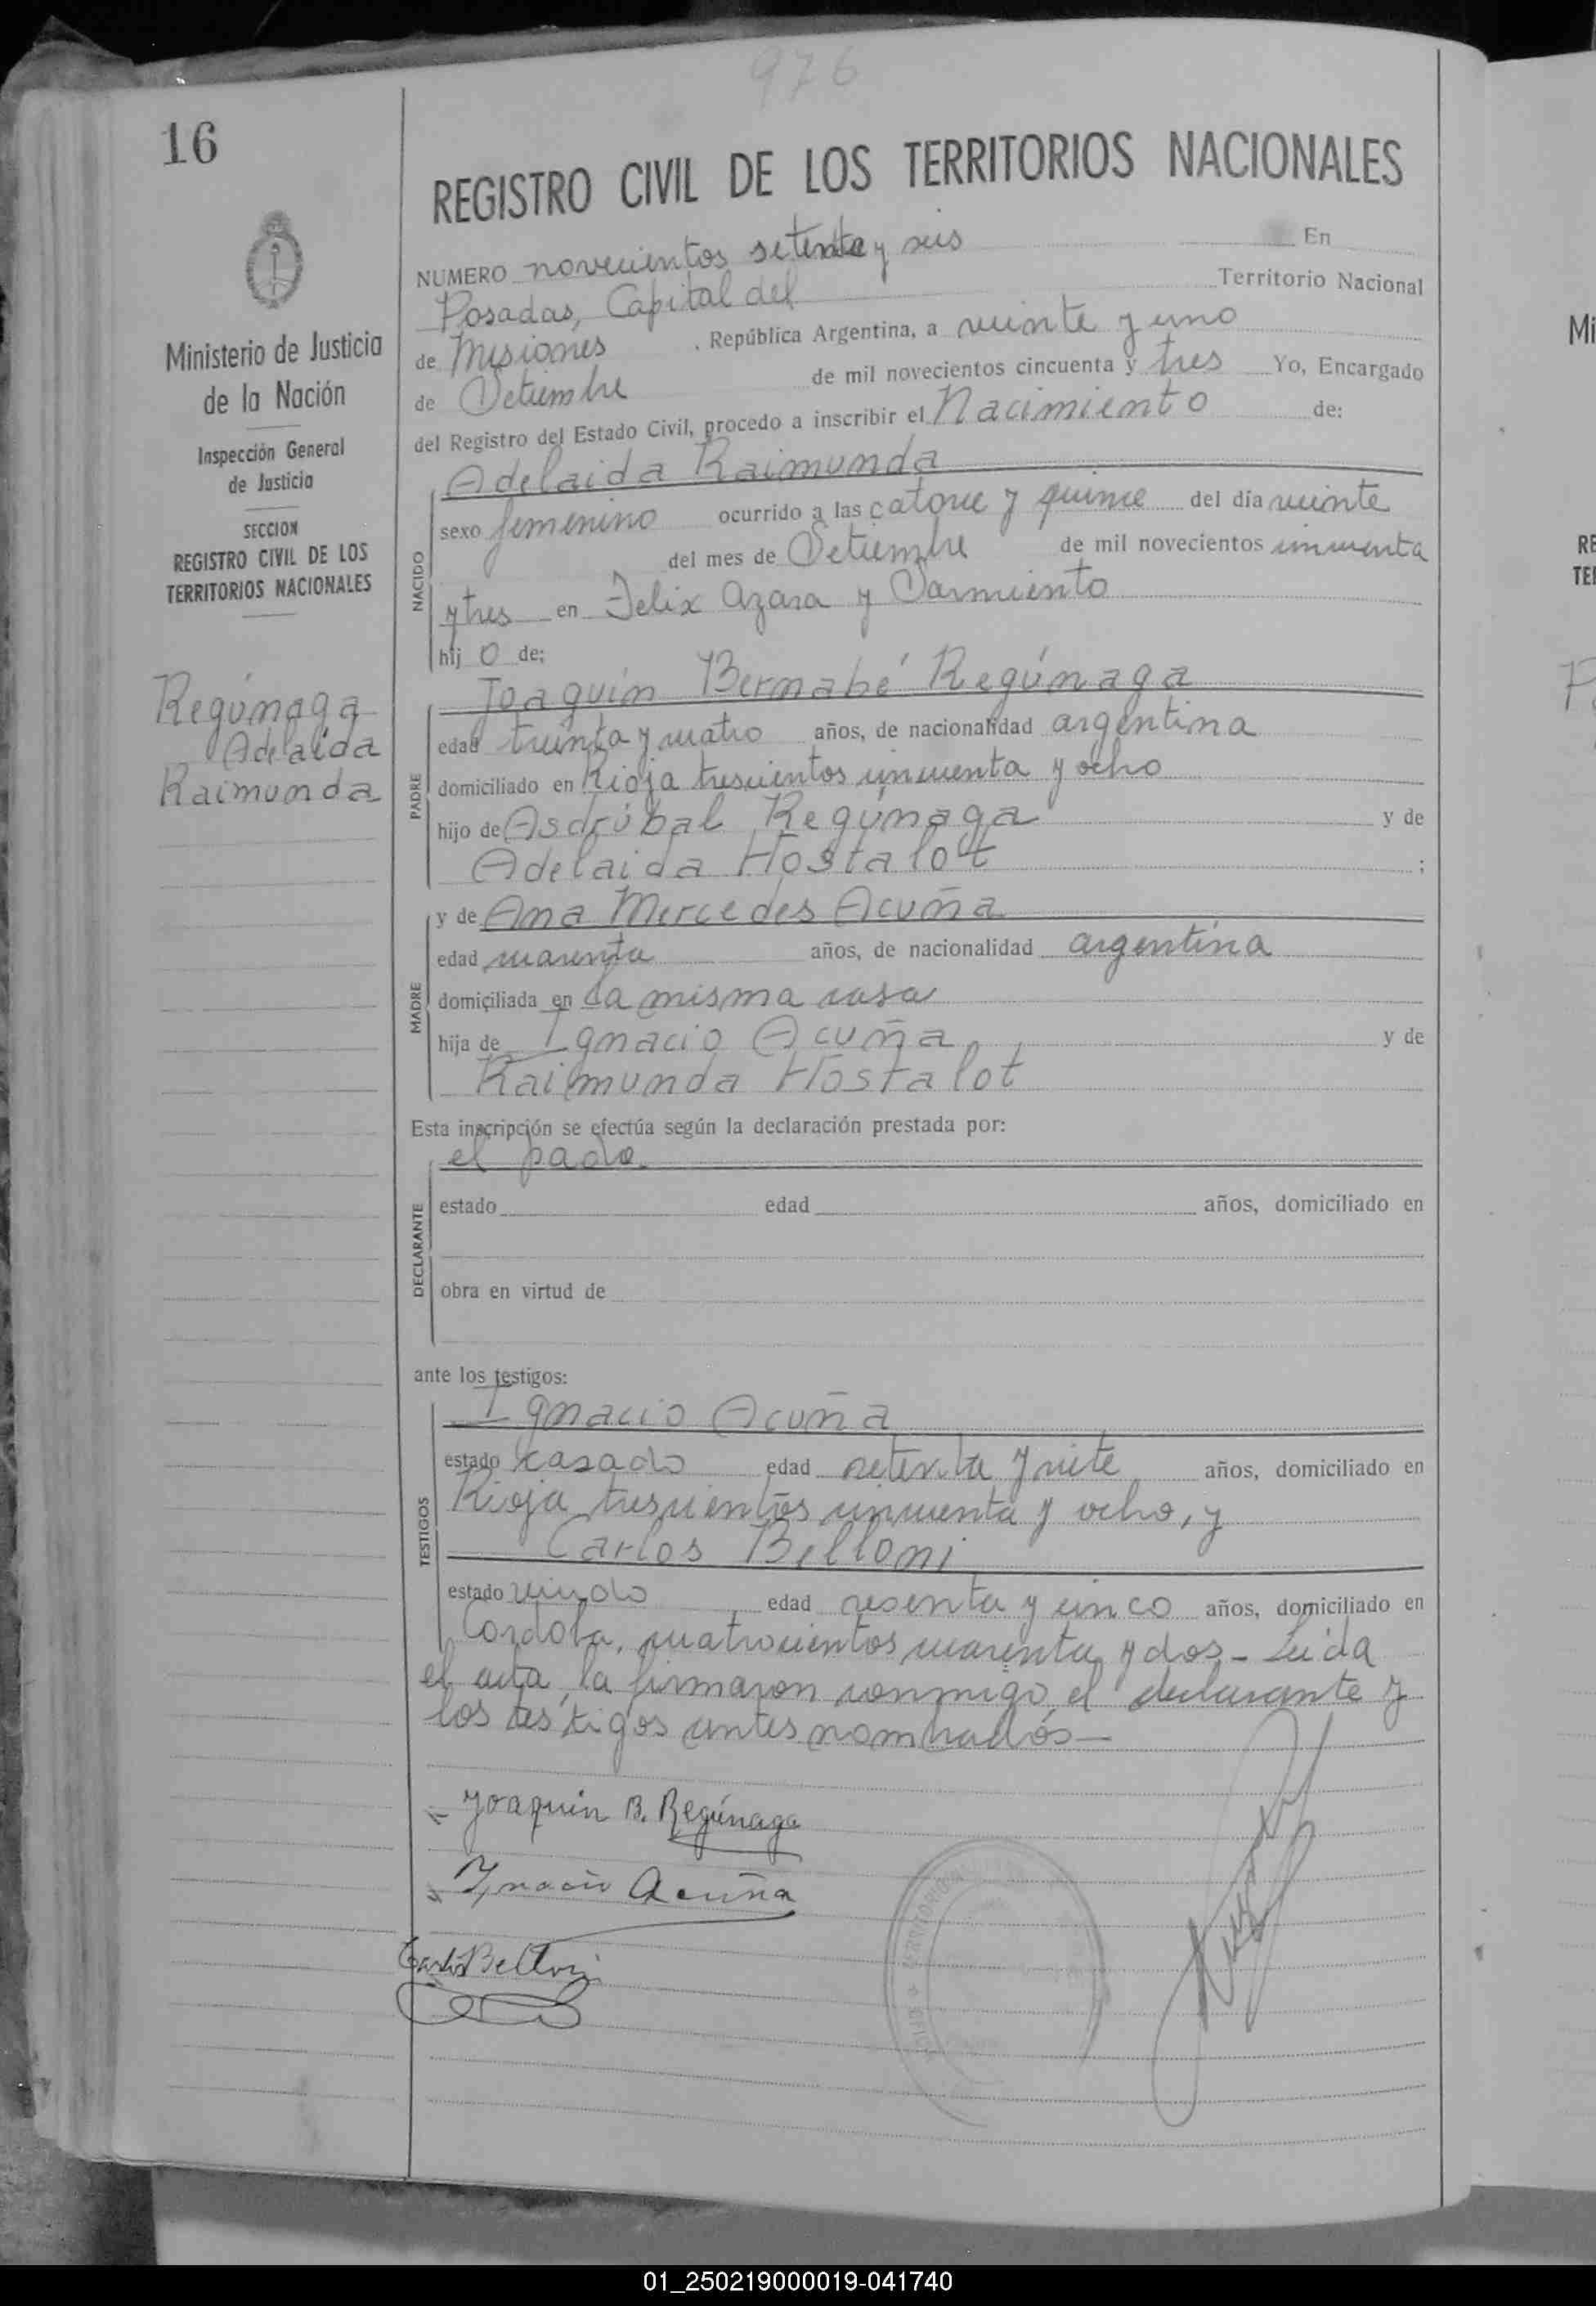 976
16
REGISTRO CIVIL DE LOS TERRITORIOS NACIONALES
NUMERO novecientos setenta y seis En
Posadas, Capital del Territorio Nacional
de Misiones, República Argentina, a veinte y uno
de Setiembre de mil novecientos cincuenta y tres Yo, Encargado
del Registro del Estado Civil, procedo a inscribir el Nacimiento de:
Ministerio de Justicia
de la Nación
Inspección General
de Justicia
SECCION
REGISTRO CIVIL DE LOS
TERRITORIOS NACIONALES
Regúnaga
Adelaida
Raimunda
NACIDO
Adelaida Raimunda
sexo femenino ocurrido a las catorce y quince del día veinte
del mes de Setiembre de mil novecientos cincuenta
y tres en Felix Azara y Sarmiento
hij o de;
PADRE
Joaquín Bernabé Regúnaga
edad treinta y cuatro años, de nacionalidad argentina
domiciliado en Rioja trescientos cincuenta y ocho
hijo de Asdrúbal Regúnaga y de
Adelaida Hostalot ;
MADRE
y de Ana Mercedes Acuña
edad cuarenta años, de nacionalidad argentina
domiciliada en la misma casa
hija de Ignacio Acuña y de
Raimunda Hostalot
Esta inscripción se efectúa según la declaración prestada por:
DECLARANTE
el padre
estado edad años, domiciliado en
obra en virtud de
ante los testigos:
TESTIGOS
Ignacio Acuña
estado casado edad setenta y siete años, domiciliado en
Rioja trescientos cincuenta y ocho, y
Carlos Belloni
estado viudo edad sesenta y cinco años, domiciliado en
Cordoba, cuatrocientos cuarenta y dos - Leida
el acta, la firmaron conmigo, el declarante y
los testigos antes nombrados—
Joaquín B. Regúnaga
Ignacio Acuña
Carlos Belloni
TERRITORIO
Mi
RE
TE
01_250219000019-041740